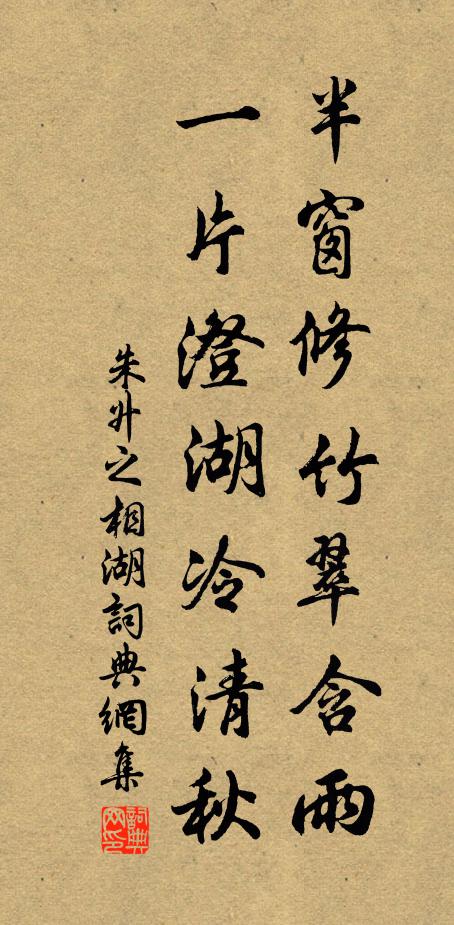 半窗修竹翠含雨
一片澄湖冷清秋
朱升之相湖詞典網集
詞典網印